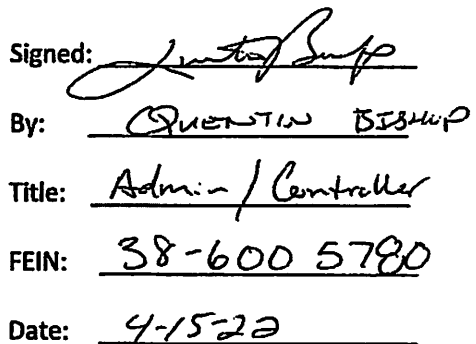 Signed:
By: QUENTIN BISHOP
Title: Admin / Controller
FEIN: 38-600 5780
Date: 4-15-22